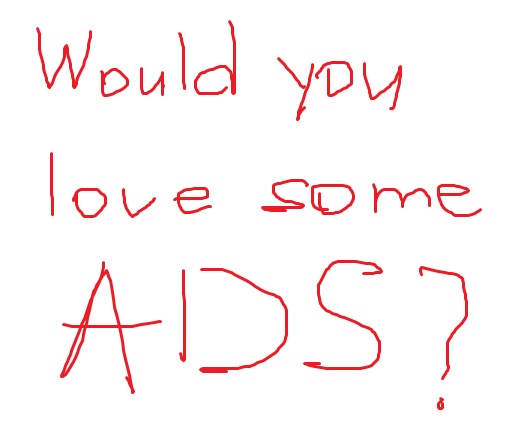 Would you
love some
ADS?